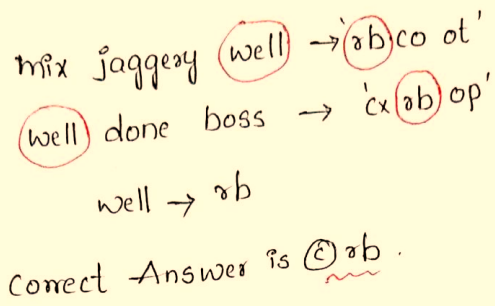 mix jaggery well → 'rb co ot'
well done boss → 'cx rb op'
well → rb
Correct Answer is ⓒ rb.